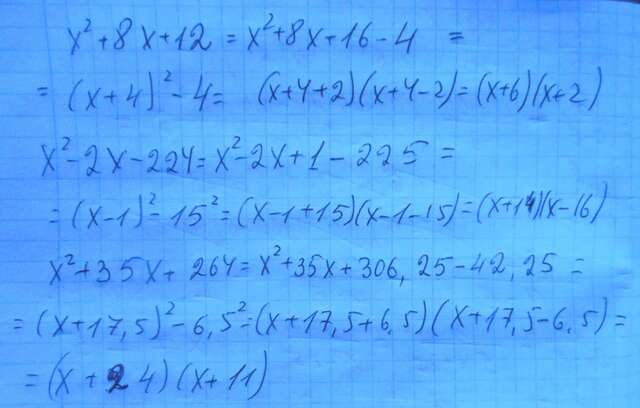 x²+8x+12 = x²+8x+16-4 =
= (x+4)²-4= (x+4+2)(x+4-2)=(x+6)(x+2)
x²-2x-224=x²-2x+1-225=
=(x-1)²-15²=(x-1+15)(x-1-15)=(x+14)(x-16)
x²+35x+264=x²+35x+306,25-42,25=
=(x+17,5)²-6,5²=(x+17,5+6,5)(x+17,5-6,5)=
=(x+24)(x+11)